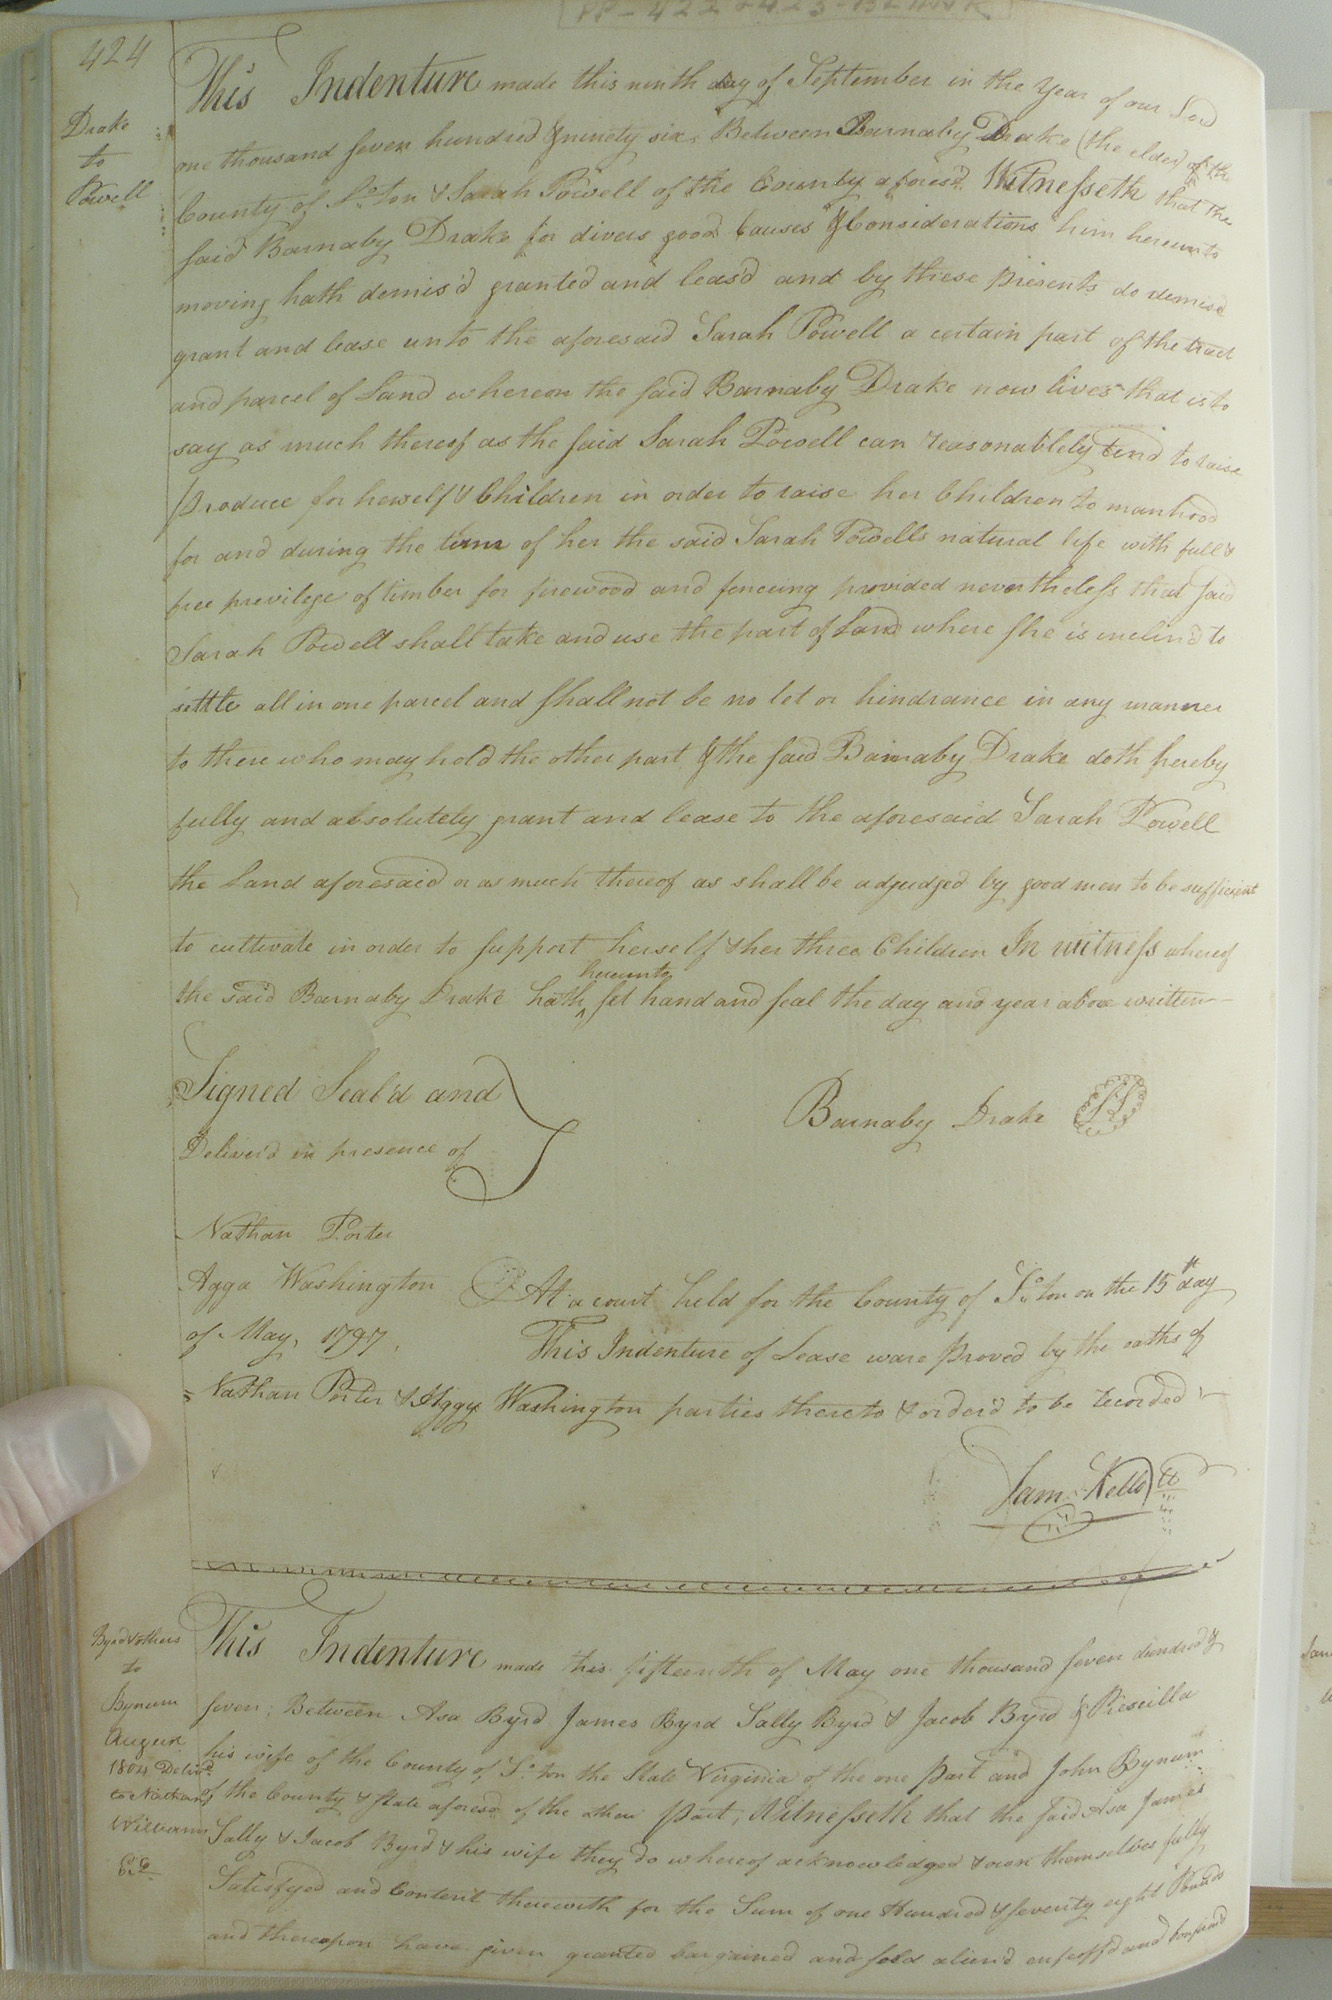 PP-422+423-BLANK
424
Drake
to
Powell
This Indenture made this ninth day of September in the Year of our Lord
one thousand seven hundred & ninety six Between Barnaby Drake (the elder) of the
County of So. ton & Sarah Powell of the County aforesd. Witnesseth that the
said Barnaby Drake for divers good Causes & Considerations him hereunto
moving hath demis'd granted and leas'd and by these presents do demise
grant and lease unto the aforesaid Sarah Powell a certain part of the tract
and parcel of Land whereon the said Barnaby Drake now lives that is to
say as much thereof as the said Sarah Powell can reasonablely tend to raise
produce for herself & Children in order to raise her Children to manhood
for and during the term of her the said Sarah Powells natural life with full &
free previlege of timber for firewood and fenceing provided nevertheless that said
Sarah Powell shall take and use the part of Land where she is inclin'd to
settle all in one parcel and shall not be no let or hindrance in any manner
to those who may hold the other part & the said Barnaby Drake doth hereby
fully and absolutely grant and lease to the aforesaid Sarah Powell
the Land aforesaid or as much thereof as shall be adjudged by good men to be sufficient
to cultivate in order to support herself & her three Children In witness whereof
the said Barnaby Drake hath hereunto set hand and seal the day and year above written
Signed Seal'd and
Deliver'd in presence of
Barnaby Drake LS
Nathan Porter
Agga Washington
At a court held for the County of So. ton on the 15th day
of May, 1797.
This Indenture of Lease ware proved by the oaths of
Nathan Porter & Aggy Washington parties thereto & order'd to be recorded
Sam. Kello Ct
Byrd & others
to
Bynum
August
1804 Deliv'd
to Nathan
Williams
This Indenture made this fifteenth of May one thousand seven hundred &
seven; Between Asa Byrd James Byrd Sally Byrd & Jacob Byrd & Priscilla
his wife of the County of So. ton the State Virginia of the one part and John Bynum
of the County & State aforesd. of the other part, Witnesseth that the said Asa James
Sally & Jacob Byrd & his wife they do whereof acknowledged & own themselves fully
Satisfyed and Content therewith for the Sum of one Hundred & seventy eight Pounds
and thereupon have given granted bargained and sold alien'd enfeoff'd and confirm'd